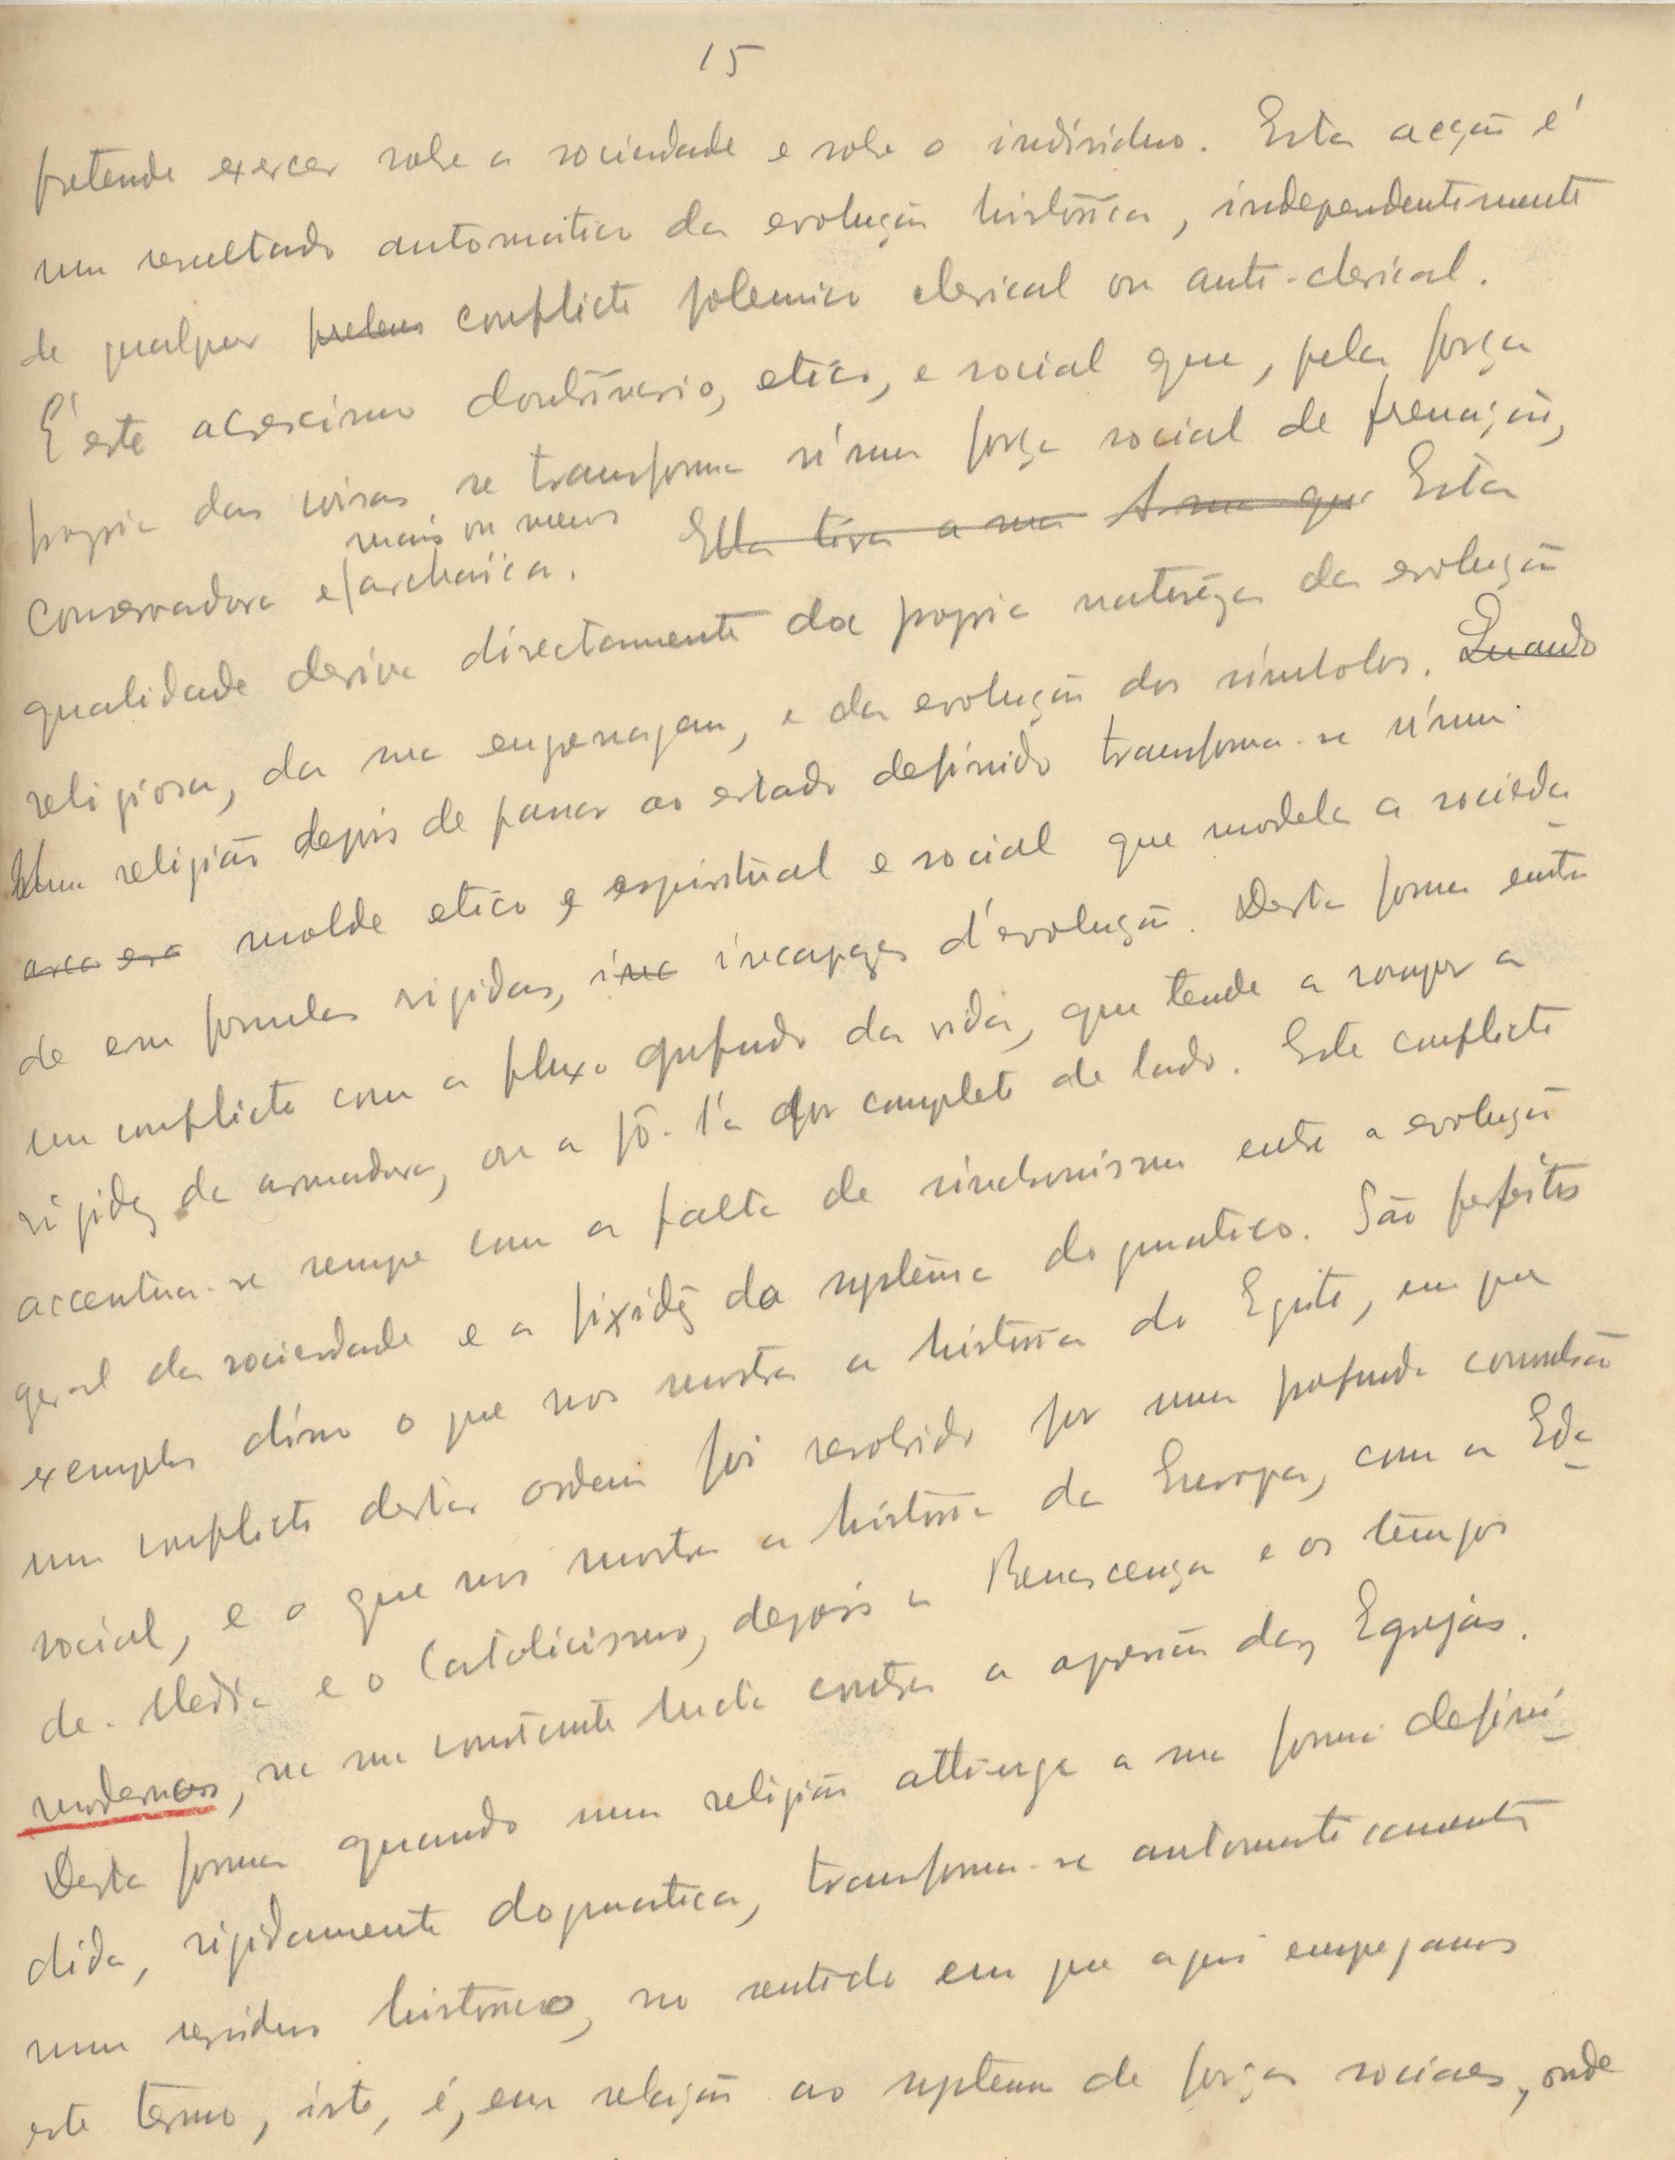 15
pretende exercer sobre a sociedade e sobre o individuo. Esta acção é
um resultado automatico da evolução histórica, independentemente
de qualquer conflicto polemico clerical ou anti-clerical.
É este acrescimo doutrinario, etico, e social que, pela força
propria das coisas se transforma n'uma força social de frenação,
mais ou menos
conservadora e archaica. Ella tira a sua A sua que Esta
qualidade deriva directamente da propria natureza da evolução
religiosa, da sua engrenagem, e da evolução dos simbolos. Quando
Uma religião depois de passar ao estado definido transforma-se n'um
molde etico e espiritual e social que modela a socieda
de em formulas rigidas, incapazes d'evolução. Desta forma entra
em conflicto com o fluxo profundo da vida, que tende a romper a
rigidez da armadura, ou a pô-l'a por completo de lado. Este conflicto
accentua-se sempre com a falta de sinchonismo entre a evolução
geral da sociedade e a fixidez do systema dogmatico. São perfeitos
exemplos disso o que nos mostra a história do Egito, em que
um conflicto desta ordem foi resolvido por uma profunda convulsão
social, e o que nos mostra a história da Europa, com a Eda
de-Media e o Catolicismo, depois a Renascença e os tempos
modernos, na sua constante lucta contra a opressão das Egrejas.
Desta forma quando uma religião attinge a sua forma defini
dida, rigidamente dogmatica, transforma-se automaticamente
num residuo historico, no sentido em que aqui empregamos
este termo, isto, é, em relação ao systema de forças sociaes, onde